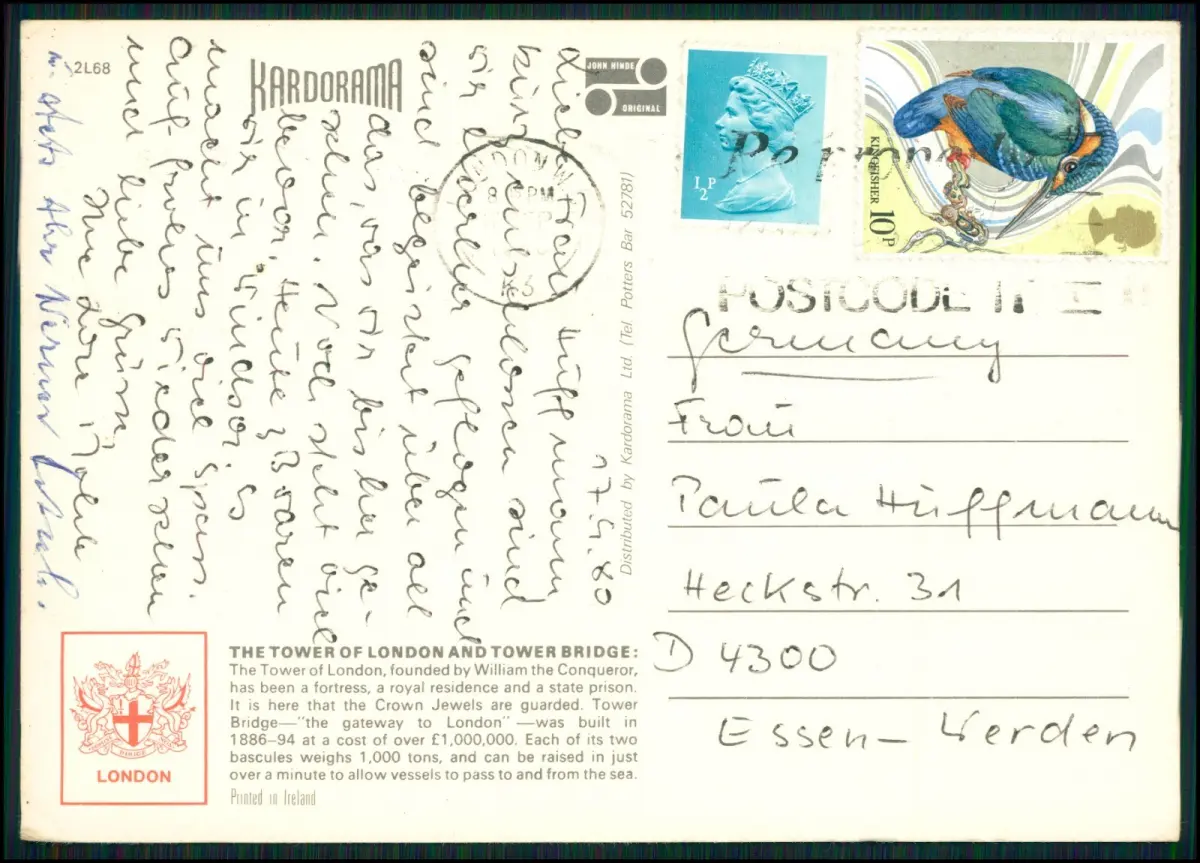 2L68
KARDORAMA
JOHN HINDE
ORIGINAL
½P
KINGFISHER
10P
POSTCODE IT
Distributed by Kardorama Ltd. (Tel Potters Bar 52781)
17.9.80
Liebe Frau Hüffmann
kurz entschlossen sind
wir geflogen und
sind begeistert über all
das, was wir bisher ge-
sehen. Noch steht viel
bevor, Heute waren
wir in Windsor. Es
macht uns viel Spass.
Auf frohes Wiedersehen
und liebe Grüsse
Ihre Lore
stets Ihr Werner
Germany
Frau
Paula Hüffmann
Heckstr. 31
D 4300
Essen-Werden
THE TOWER OF LONDON AND TOWER BRIDGE:
The Tower of London, founded by William the Conqueror,
has been a fortress, a royal residence and a state prison.
It is here that the Crown Jewels are guarded. Tower
Bridge—"the gateway to London"—was built in
1886–94 at a cost of over £1,000,000. Each of its two
bascules weighs 1,000 tons, and can be raised in just
over a minute to allow vessels to pass to and from the sea.
Printed in Ireland
LONDON